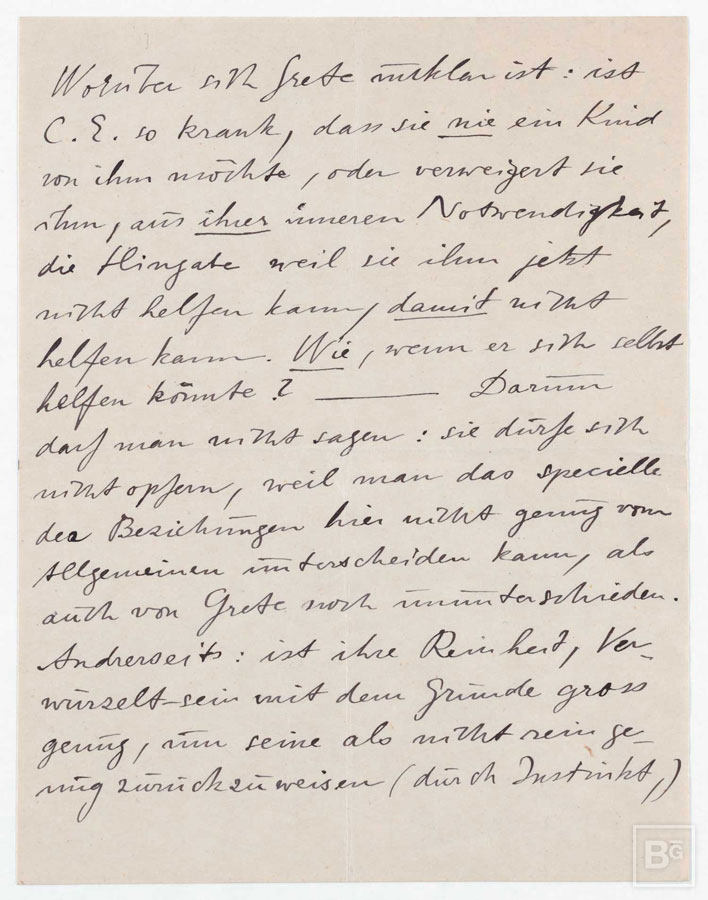 Worüber sich Grete unklar ist: ist
C. E. so krank, dass sie nie ein Kind
von ihm möchte, oder verweigert sie
ihm, aus ihrer inneren Notwendigkeit,
die Hingabe weil sie ihm jetzt
nicht helfen kann, damit nicht
helfen kann. Wie, wenn er sich selbst
helfen könnte? ——— Darum
darf man nicht sagen: sie dürfe sich
nicht opfern, weil man das specielle
der Beziehungen hier nicht genug vom
Allgemeinen unterscheiden kann, als
auch von Grete noch ununterschieden.
Andrerseits: ist ihre Reinheit, Ver-
wurzelt-sein mit dem Grunde gross
genug, um seine als nicht rein ge-
nug zurückzuweisen (durch Instinkt,)
BG